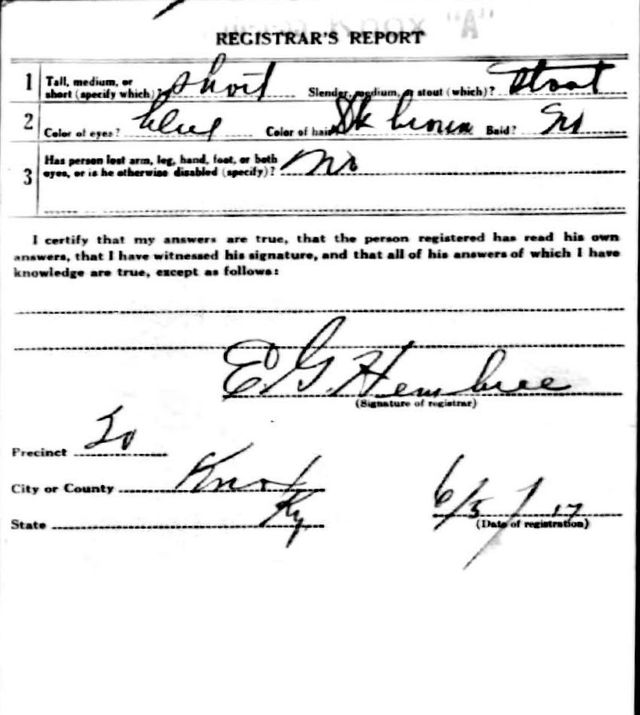 REGISTRAR'S REPORT
1 Tall, medium, or short (specify which)? short Slender, medium, or stout (which)? stout
2 Color of eyes? blue Color of hair? Dk brown Bald? No
3 Has person lost arm, leg, hand, foot, or both eyes, or is he otherwise disabled (specify)? No
I certify that my answers are true, that the person registered has read his own
answers, that I have witnessed his signature, and that all of his answers of which I have
knowledge are true, except as follows:
E G Hembree
(Signature of registrar)
Precinct 20
City or County Knox
State Ky
6/5/17
(Date of registration)